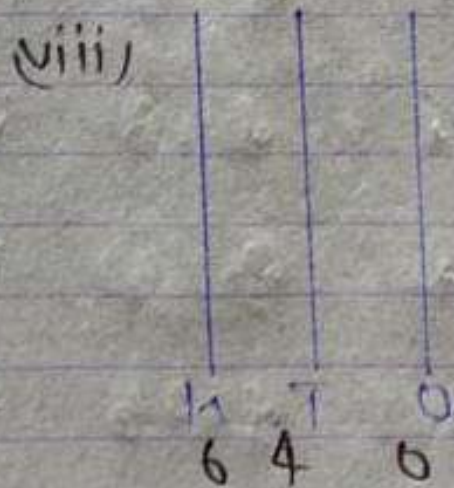 (viii)
H T O
6 4 0